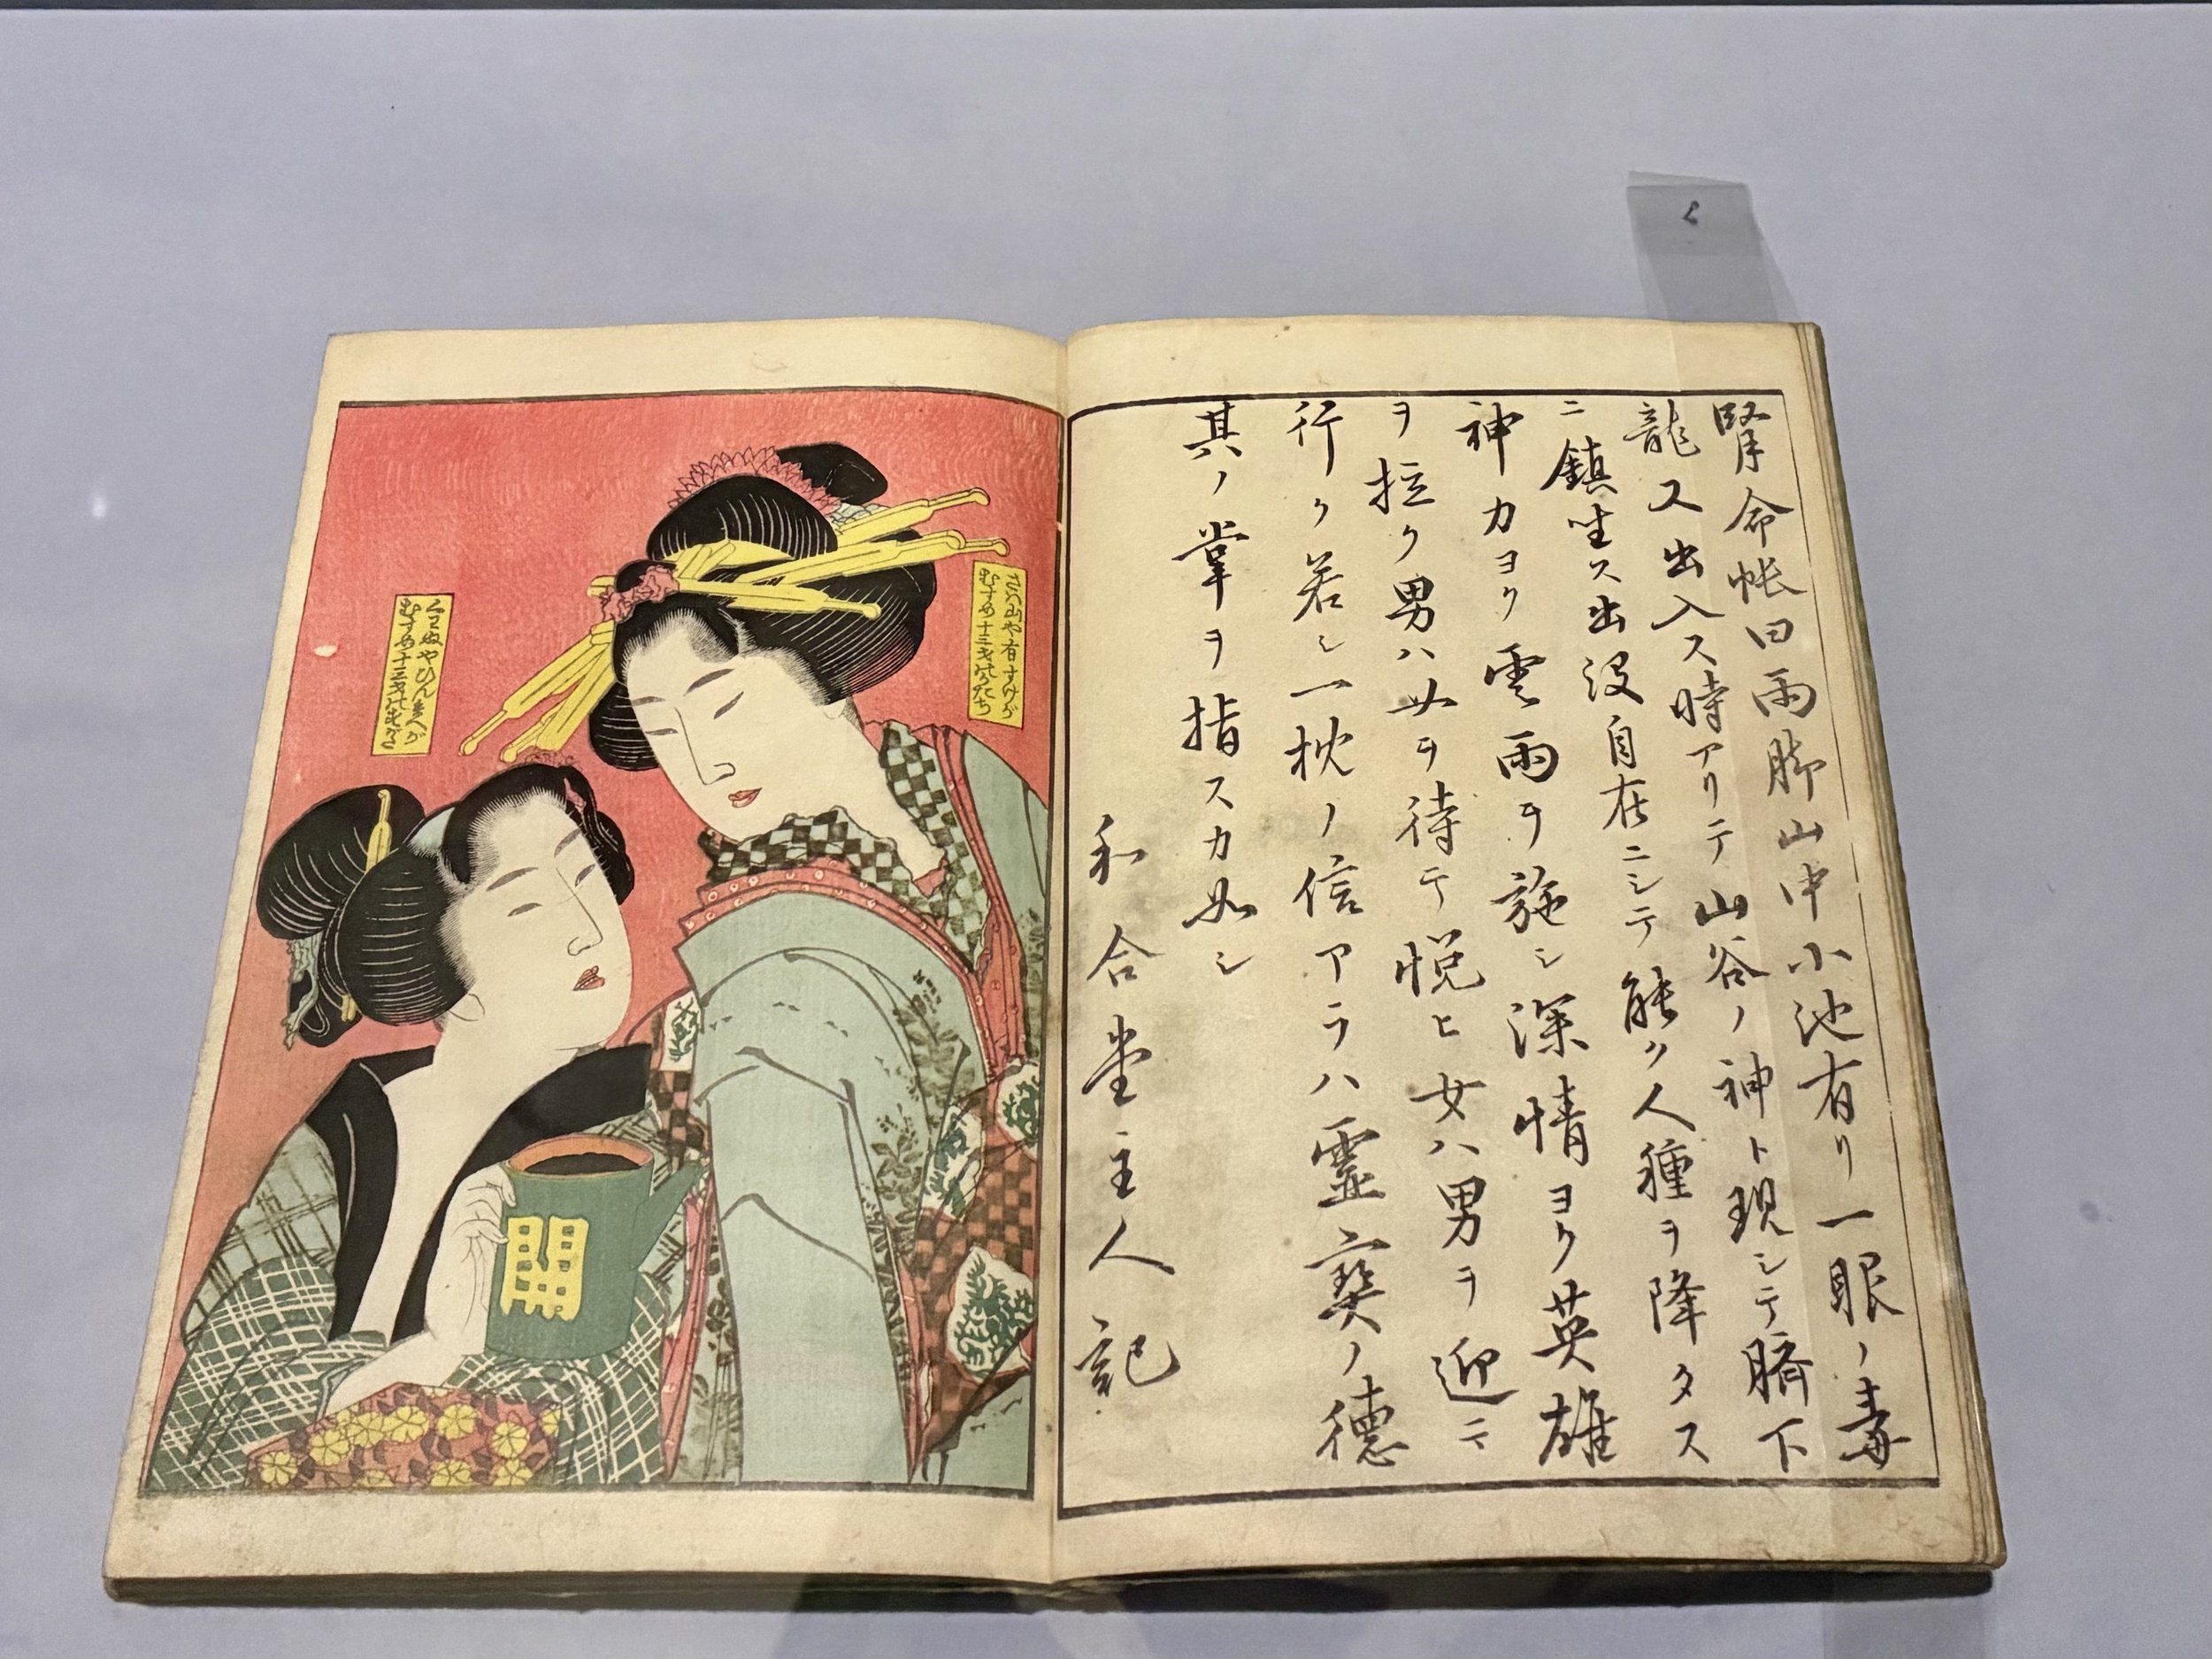 腎命帳曰両脚山中小池有リ一眼ノ毒
龍又出入ス時アリテ山谷ノ神ト現シテ臍下
ニ鎮坐ス出没自在ニシテ能ク人種ヲ降タス
神力ヨク雲雨ヲ施シ深情ヨク英雄
ヲ拉ク男ハ女ヲ待テ悦ヒ女ハ男ヲ迎ニ
行ク若シ一枕ノ信アラハ霊寶ノ徳
其ノ掌ヲ指スカ如シ
和合堂主人記
さハ山や有すけが
むすめ十三才のかたち
むすめ十三才
開